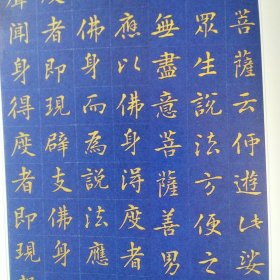 菩薩云何遊此娑
眾生說法方便之
無盡意菩薩善男
應以佛身得度者
佛身而為說法應
者即現辟支佛身
聞身得度者即現